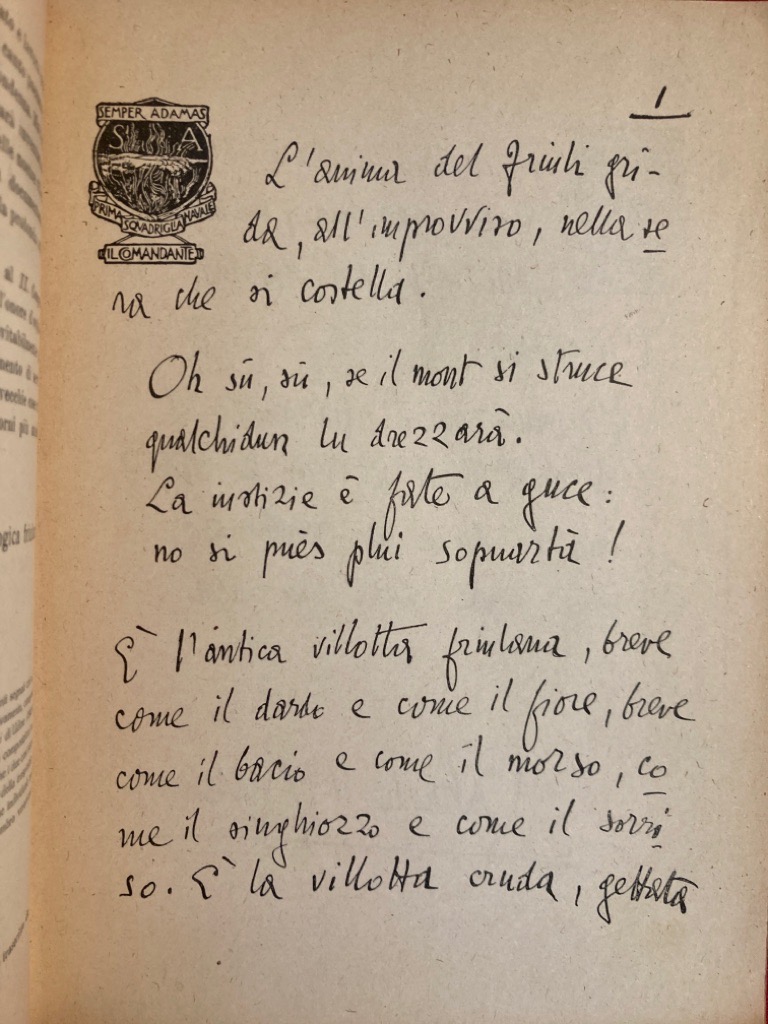 SEMPER ADAMAS
S A
PRIMA SQUADRIGLIA NAVALE
IL COMANDANTE
1
L'anima del Friuli gri-
da, all'improvviso, nella se
ra che si costella.
Oh sù, sù, se il mont si struce
qualchidun lu drezzarà.
La iustizie è fate a guce:
no si puès plui sopuartà!
È l'àntica villotta friulana, breve
come il dardo e come il fiore, breve
come il bacio e come il morso, co
me il singhiozzo e come il sorri
so. È la villotta cruda, gettata